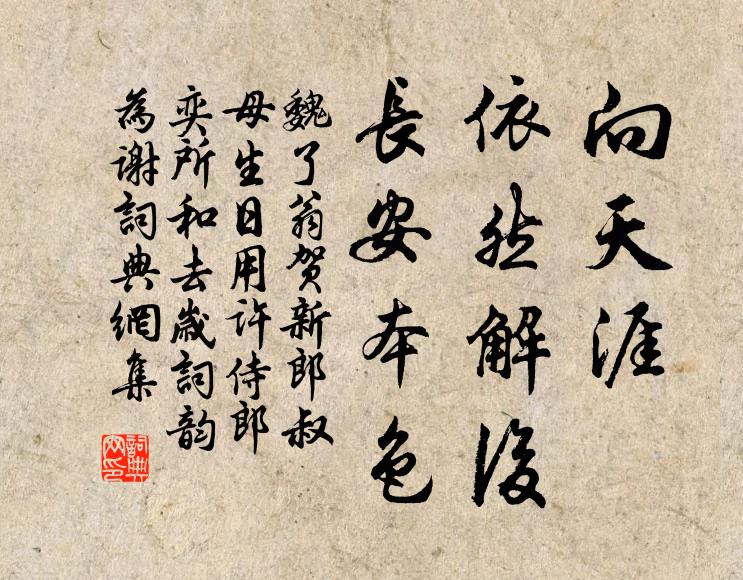 向天涯
依然解后
長安本色
魏了翁贺新郎叔
母生日用许侍郎
奕所和去歲詞韵
為谢詞典網集
詞典
网印